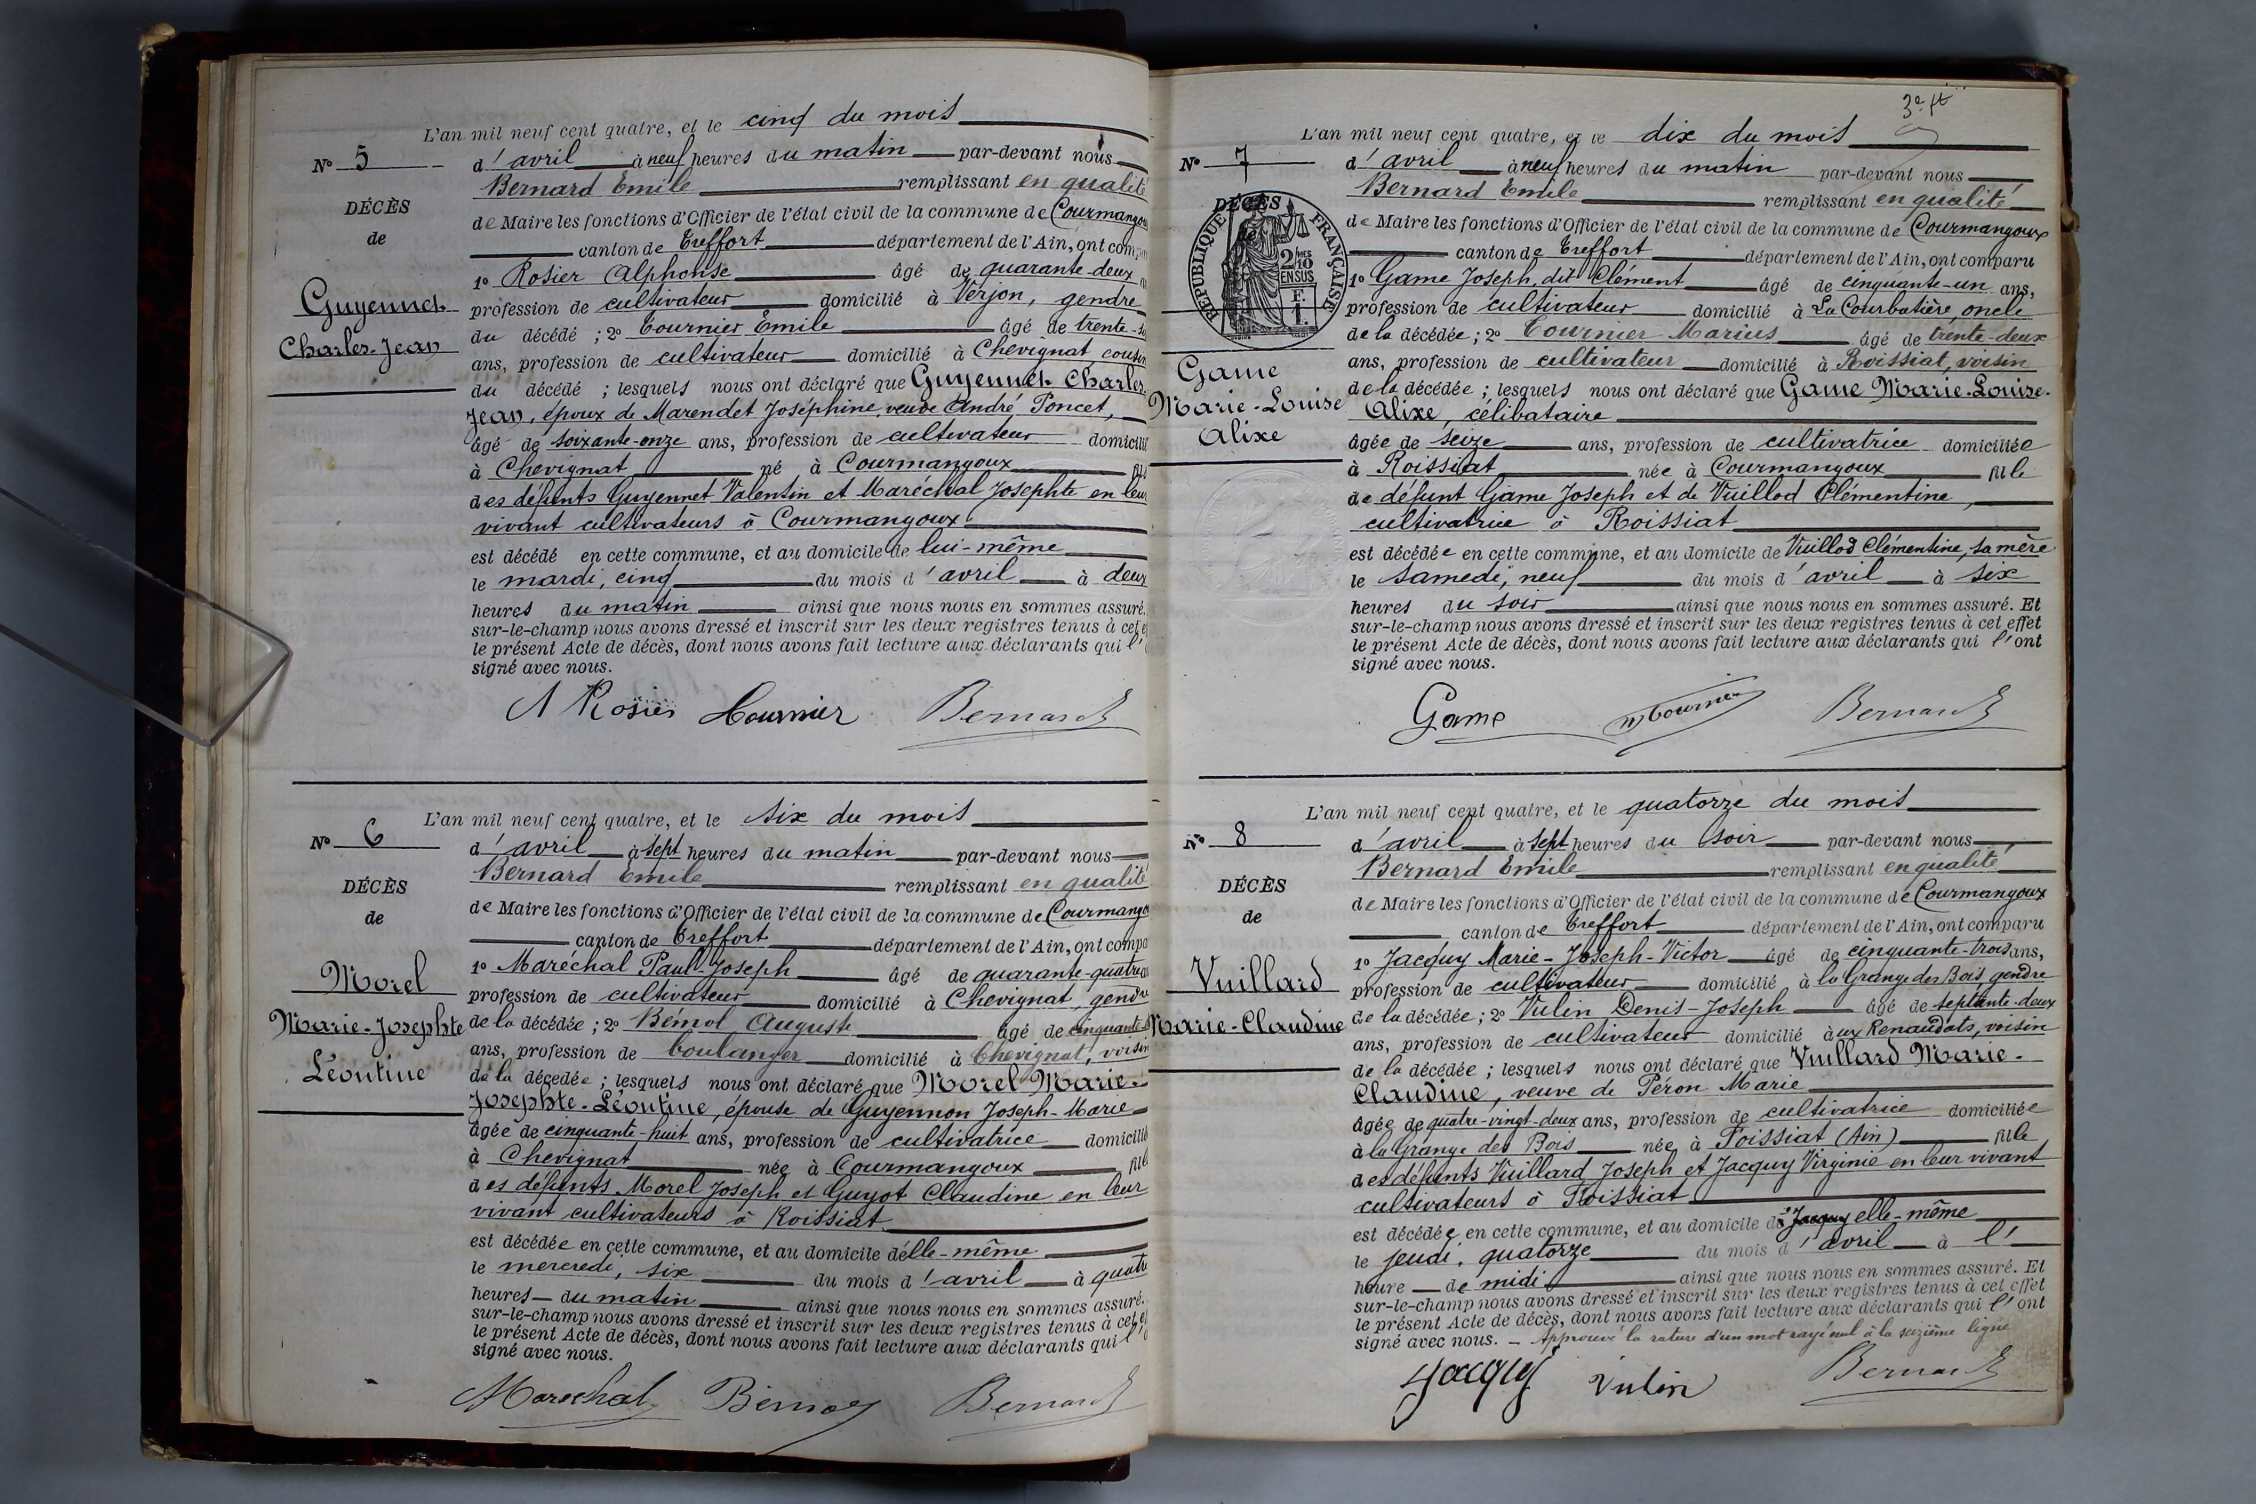 L'an mil neuf cent quatre, et le cinq du mois
N° 5
d'avril à neuf heures du matin par-devant nous
Bernard Emile remplissant en qualité
DÉCÈS
de Maire les fonctions d'Officier de l'état civil de la commune de Courmangoux
de
canton de Treffort département de l'Ain, ont comparu
1° Rosier Alphonse âgé de quarante-deux
Guyennet
profession de cultivateur domicilié à Verjon, gendre
du décédé ; 2° Tournier Emile âgé de trente-
Charles-Jean
ans, profession de cultivateur domicilié à Chevignat cousin
du décédé ; lesquels nous ont déclaré que Guyennet Charles-
Jean, époux de Marendet Joséphine, veuve André Poncet,
âgé de soixante-onze ans, profession de cultivateur domicilié
à Chevignat né à Courmangoux fils
des défunts Guyennet Valentin et Maréchal Josephte en leur
vivant cultivateurs à Courmangoux
est décédé en cette commune, et au domicile de lui-même
le mardi, cinq du mois d'avril à deux
heures du matin ainsi que nous nous en sommes assuré.
sur-le-champ nous avons dressé et inscrit sur les deux registres tenus à cet
le présent Acte de décès, dont nous avons fait lecture aux déclarants qui l'
signé avec nous.
A Rosier Tournier Bernard
L'an mil neuf cent quatre, et le six du mois
N° 6
d'avril à sept heures du matin par-devant nous
Bernard Emile remplissant en qualité
DÉCÈS
de Maire les fonctions d'Officier de l'état civil de la commune de Courmango
de
canton de Treffort département de l'Ain, ont compa
1° Maréchal Paul-Joseph âgé de quarante-quatre
Morel
profession de cultivateur domicilié à Chevignat, gendre
Marie-Josephte
de la décédée ; 2° Bémol Auguste âgé de cinquante
ans, profession de boulanger domicilié à Chevignat, voisin
Léontine
de la décédée ; lesquels nous ont déclaré que Morel Marie-
Josephte-Léontine, épouse de Guyennon Joseph-Marie
âgée de cinquante-huit ans, profession de cultivatrice domicilié
à Chevignat née à Courmangoux fille
des défunts Morel Joseph et Guyot Claudine en leur
vivant cultivateurs à Roissiat
est décédée en cette commune, et au domicile d'elle-même
le mercredi, six du mois d'avril à quatre
heures du matin ainsi que nous nous en sommes assuré.
sur-le-champ nous avons dressé et inscrit sur les deux registres tenus à cet
le présent Acte de décès, dont nous avons fait lecture aux déclarants qui l'
signé avec nous.
Marechal Bémol Bernard
L'an mil neuf cent quatre, et le dix du mois
N° 7
d'avril à neuf heures du matin par-devant nous
Bernard Emile remplissant en qualité
DÉCÈS
de Maire les fonctions d'Officier de l'état civil de la commune de Courmangoux
RÉPUBLIQUE FRANÇAISE
2 MES 10 EN SUS
1 F.
canton de Treffort département de l'Ain, ont comparu
1° Game Joseph, dit Clément âgé de cinquante-un ans,
profession de cultivateur domicilié à La Courbatière, oncle
de la décédée ; 2° Tournier Marius âgé de trente-deux
Game
ans, profession de cultivateur domicilié à Roissiat, voisin
Marie-Louise
de la décédée ; lesquels nous ont déclaré que Game Marie-Louise-
Alixe
Alixe, célibataire
âgée de seize ans, profession de cultivatrice domiciliée
à Roissiat née à Courmangoux fille
de défunt Game Joseph et de Vuillod Clémentine,
cultivatrice à Roissiat
est décédée en cette commune, et au domicile de Vuillod Clémentine, sa mère
le samedi, neuf du mois d'avril à six
heures du soir ainsi que nous nous en sommes assuré. Et
sur-le-champ nous avons dressé et inscrit sur les deux registres tenus à cet effet
le présent Acte de décès, dont nous avons fait lecture aux déclarants qui l'ont
signé avec nous.
Game M Tournier Bernard
L'an mil neuf cent quatre, et le quatorze du mois
N° 8
d'avril à sept heures du soir par-devant nous
Bernard Emile remplissant en qualité
DÉCÈS
de Maire les fonctions d'Officier de l'état civil de la commune de Courmangoux
de
canton de Treffort département de l'Ain, ont comparu
1° Jacquy Marie-Joseph-Victor âgé de cinquante-trois ans,
Vuillard
profession de cultivateur domicilié à la Grange des Bois, gendre
Marie-Claudine
de la décédée ; 2° Vulin Denis-Joseph âgé de septante-deux
ans, profession de cultivateur domicilié aux Renaudats, voisin
de la décédée ; lesquels nous ont déclaré que Vuillard Marie-
Claudine, veuve de Péron Marie
âgée de quatre-vingt-deux ans, profession de cultivatrice domiciliée
à la Grange des Bois née à Foissiat (Ain) fille
des défunts Vuillard Joseph et Jacquy Virginie en leur vivant
cultivateurs à Foissiat
est décédée en cette commune, et au domicile d' Jacquy elle-même
le jeudi, quatorze du mois d'avril à l'
heure de midi ainsi que nous nous en sommes assuré. Et
sur-le-champ nous avons dressé et inscrit sur les deux registres tenus à cet effet
le présent Acte de décès, dont nous avons fait lecture aux déclarants qui l'ont
signé avec nous. – Approuvé la rature d'un mot rayé nul à la seizième ligne
Jacquy Vulin Bernard